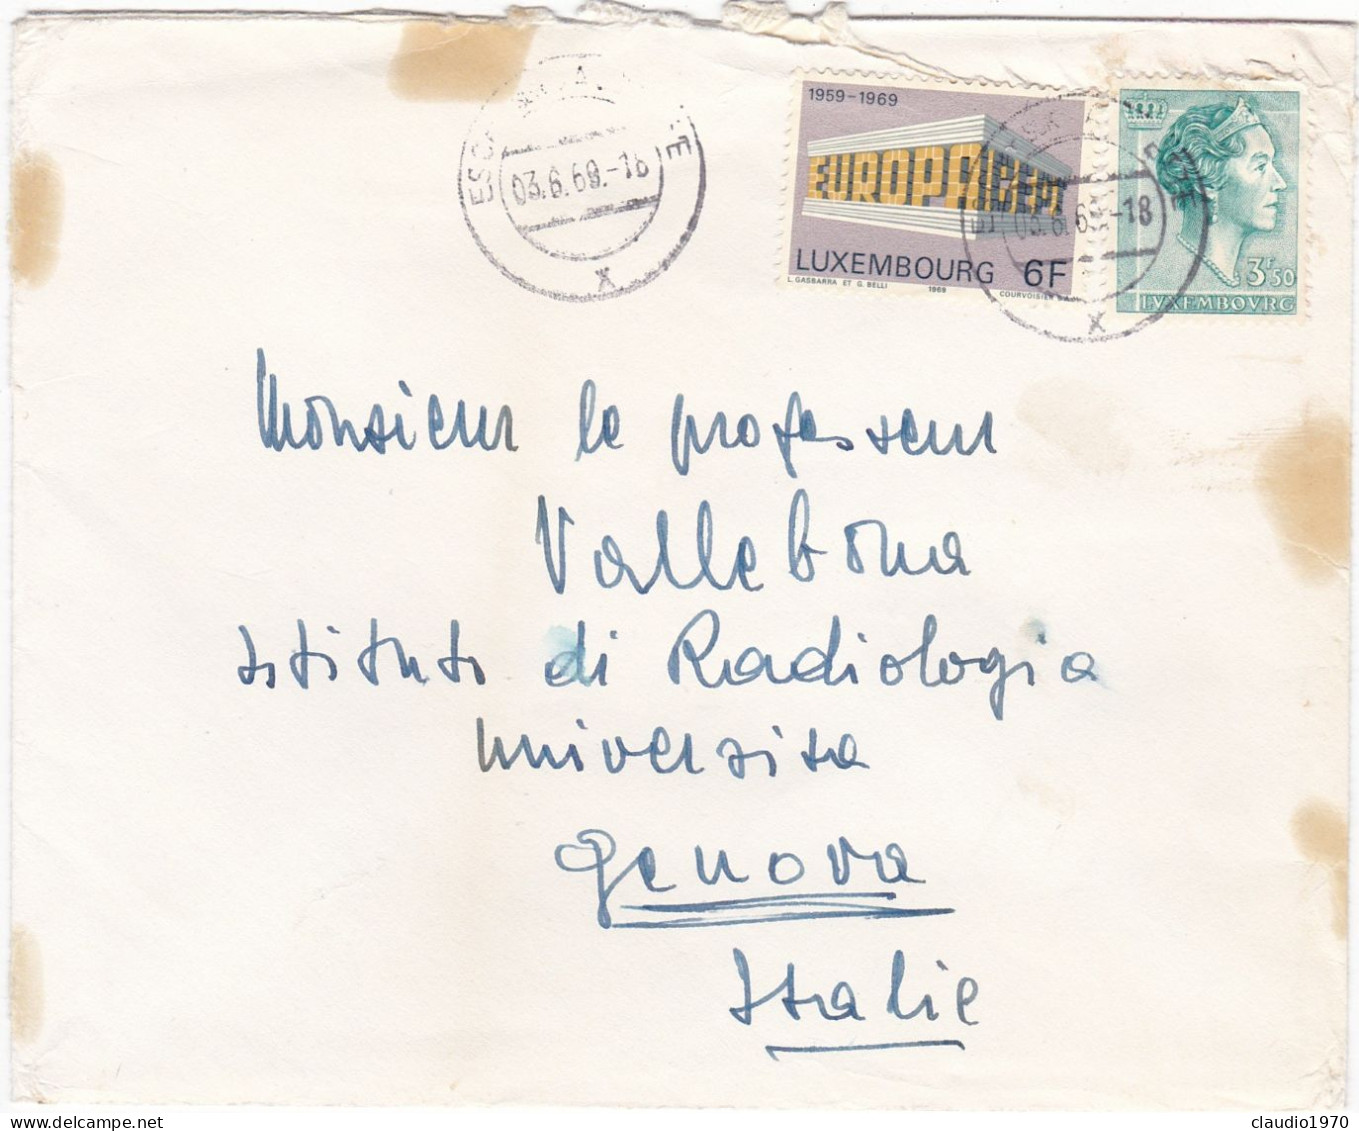 03.6.69.-18
x
1959-1969
EUROPA CEPT
LUXEMBOURG 6F
L. GASBARRA ET G. BELLI 1969 COURVOISIER S.A.
3F50
LVXEMBOVRG
03.6.69.-18
x
Monsieur le professeur
Vallebona
Istituto di Radiologia
Universita
Genova
Italie
claudio1970